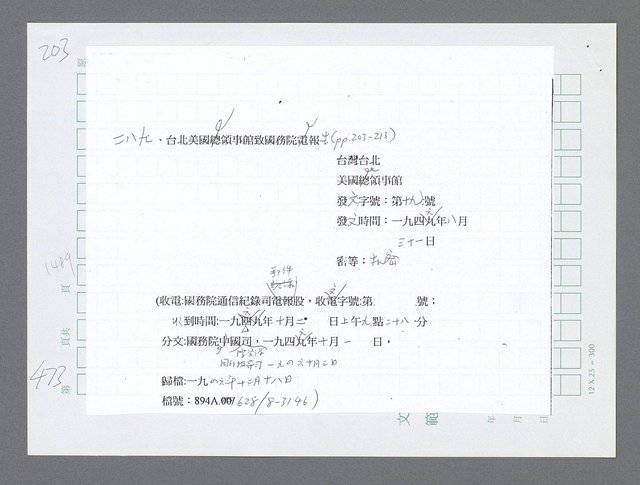 203
二八九、台北美國總領事館致國務院電報 (pp.203-213)
台灣台北
美國總領事館
發文字號：第十九號
發文時間：一九四九年八月
三十一日
密等：機密
(收電:國務院通信紀錄司電報股，收電字號:第 號；
收到時間:一九四九年十月二 日上午九點二十八分
分文:國務院中國司，一九四九年十月一 日，
歸檔:一九四六年十二月十八日
檔號：894A.00/628/8-3146)
1489
頁
頁共
473
第
文 範
年 月 日
12 X 25 = 300